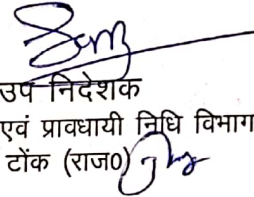 उप निदेशक
एवं प्रावधायी निधि विभाग
टोंक (राज०)